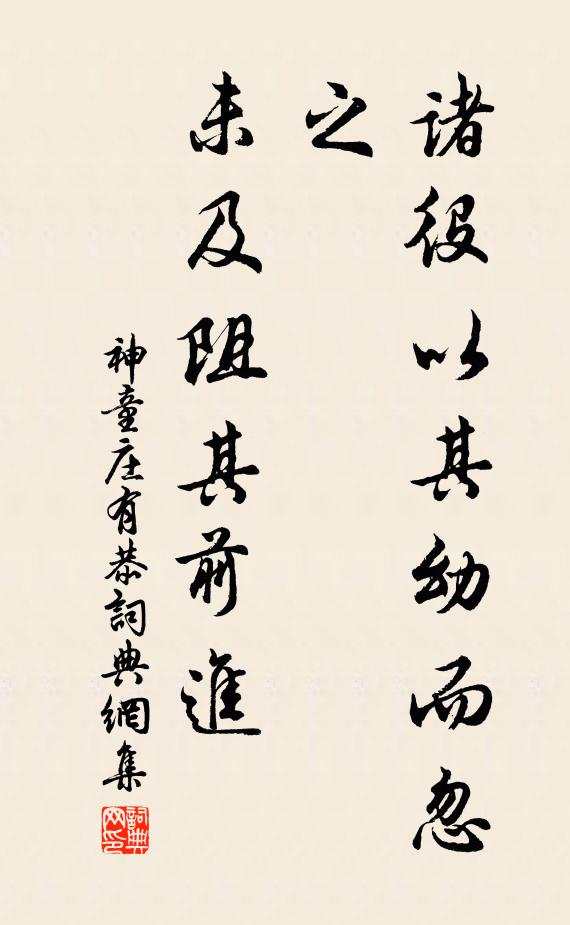 諸役以其幼而忽
之
未及阻其前進
神童庄有恭詞典網集
詞典網印